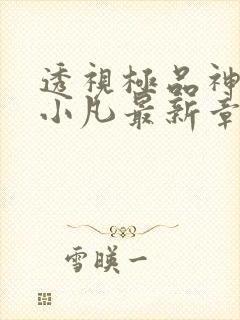 透視極品神
小凡最新章
雪暎一